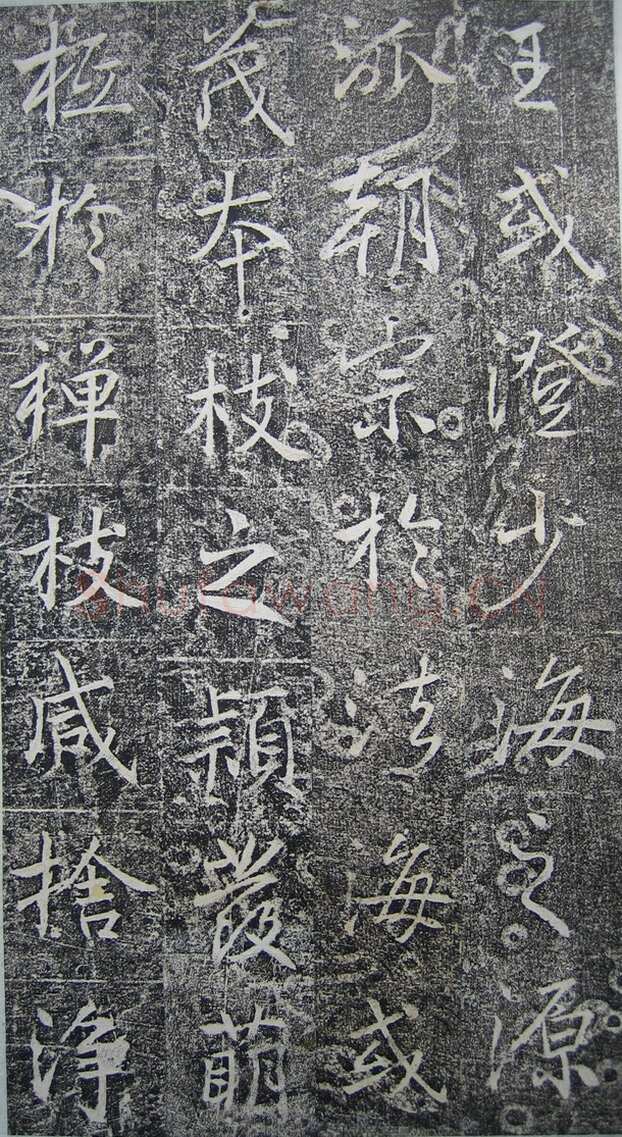 王或澄少海之源
派朝宗於法海或
茂本枝之穎發萌
柢於禪枝咸捨淨
Shufawang.CN